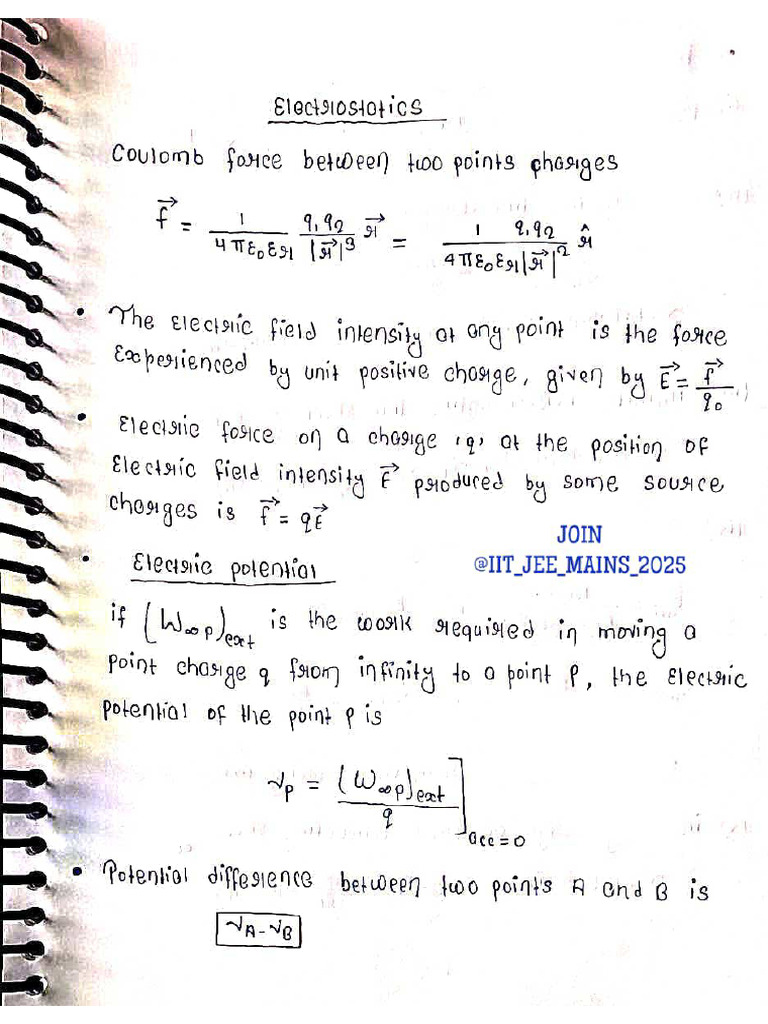 Electrostatics
Coulomb force between two points charges
f⃗ = 1/(4πε₀εr) q₁q₂/|r⃗|³ r⃗ = 1/(4πε₀εr) q₁q₂/|r⃗|² r̂
• The Electric field intensity at any point is the force
Experienced by unit positive charge, given by E⃗ = f⃗/q₀
• Electric force on a charge 'q' at the position of
Electric field intensity E⃗ produced by some source
charges is f⃗ = qE⃗
JOIN
@IIT_JEE_MAINS_2025
• Electric potential
if (W∞p)ext is the work required in moving a
point charge q from infinity to a point P, the Electric
potential of the point p is
Vp = (W∞p)ext/q ]acc=0
• Potential difference between two points A and B is
VA-VB